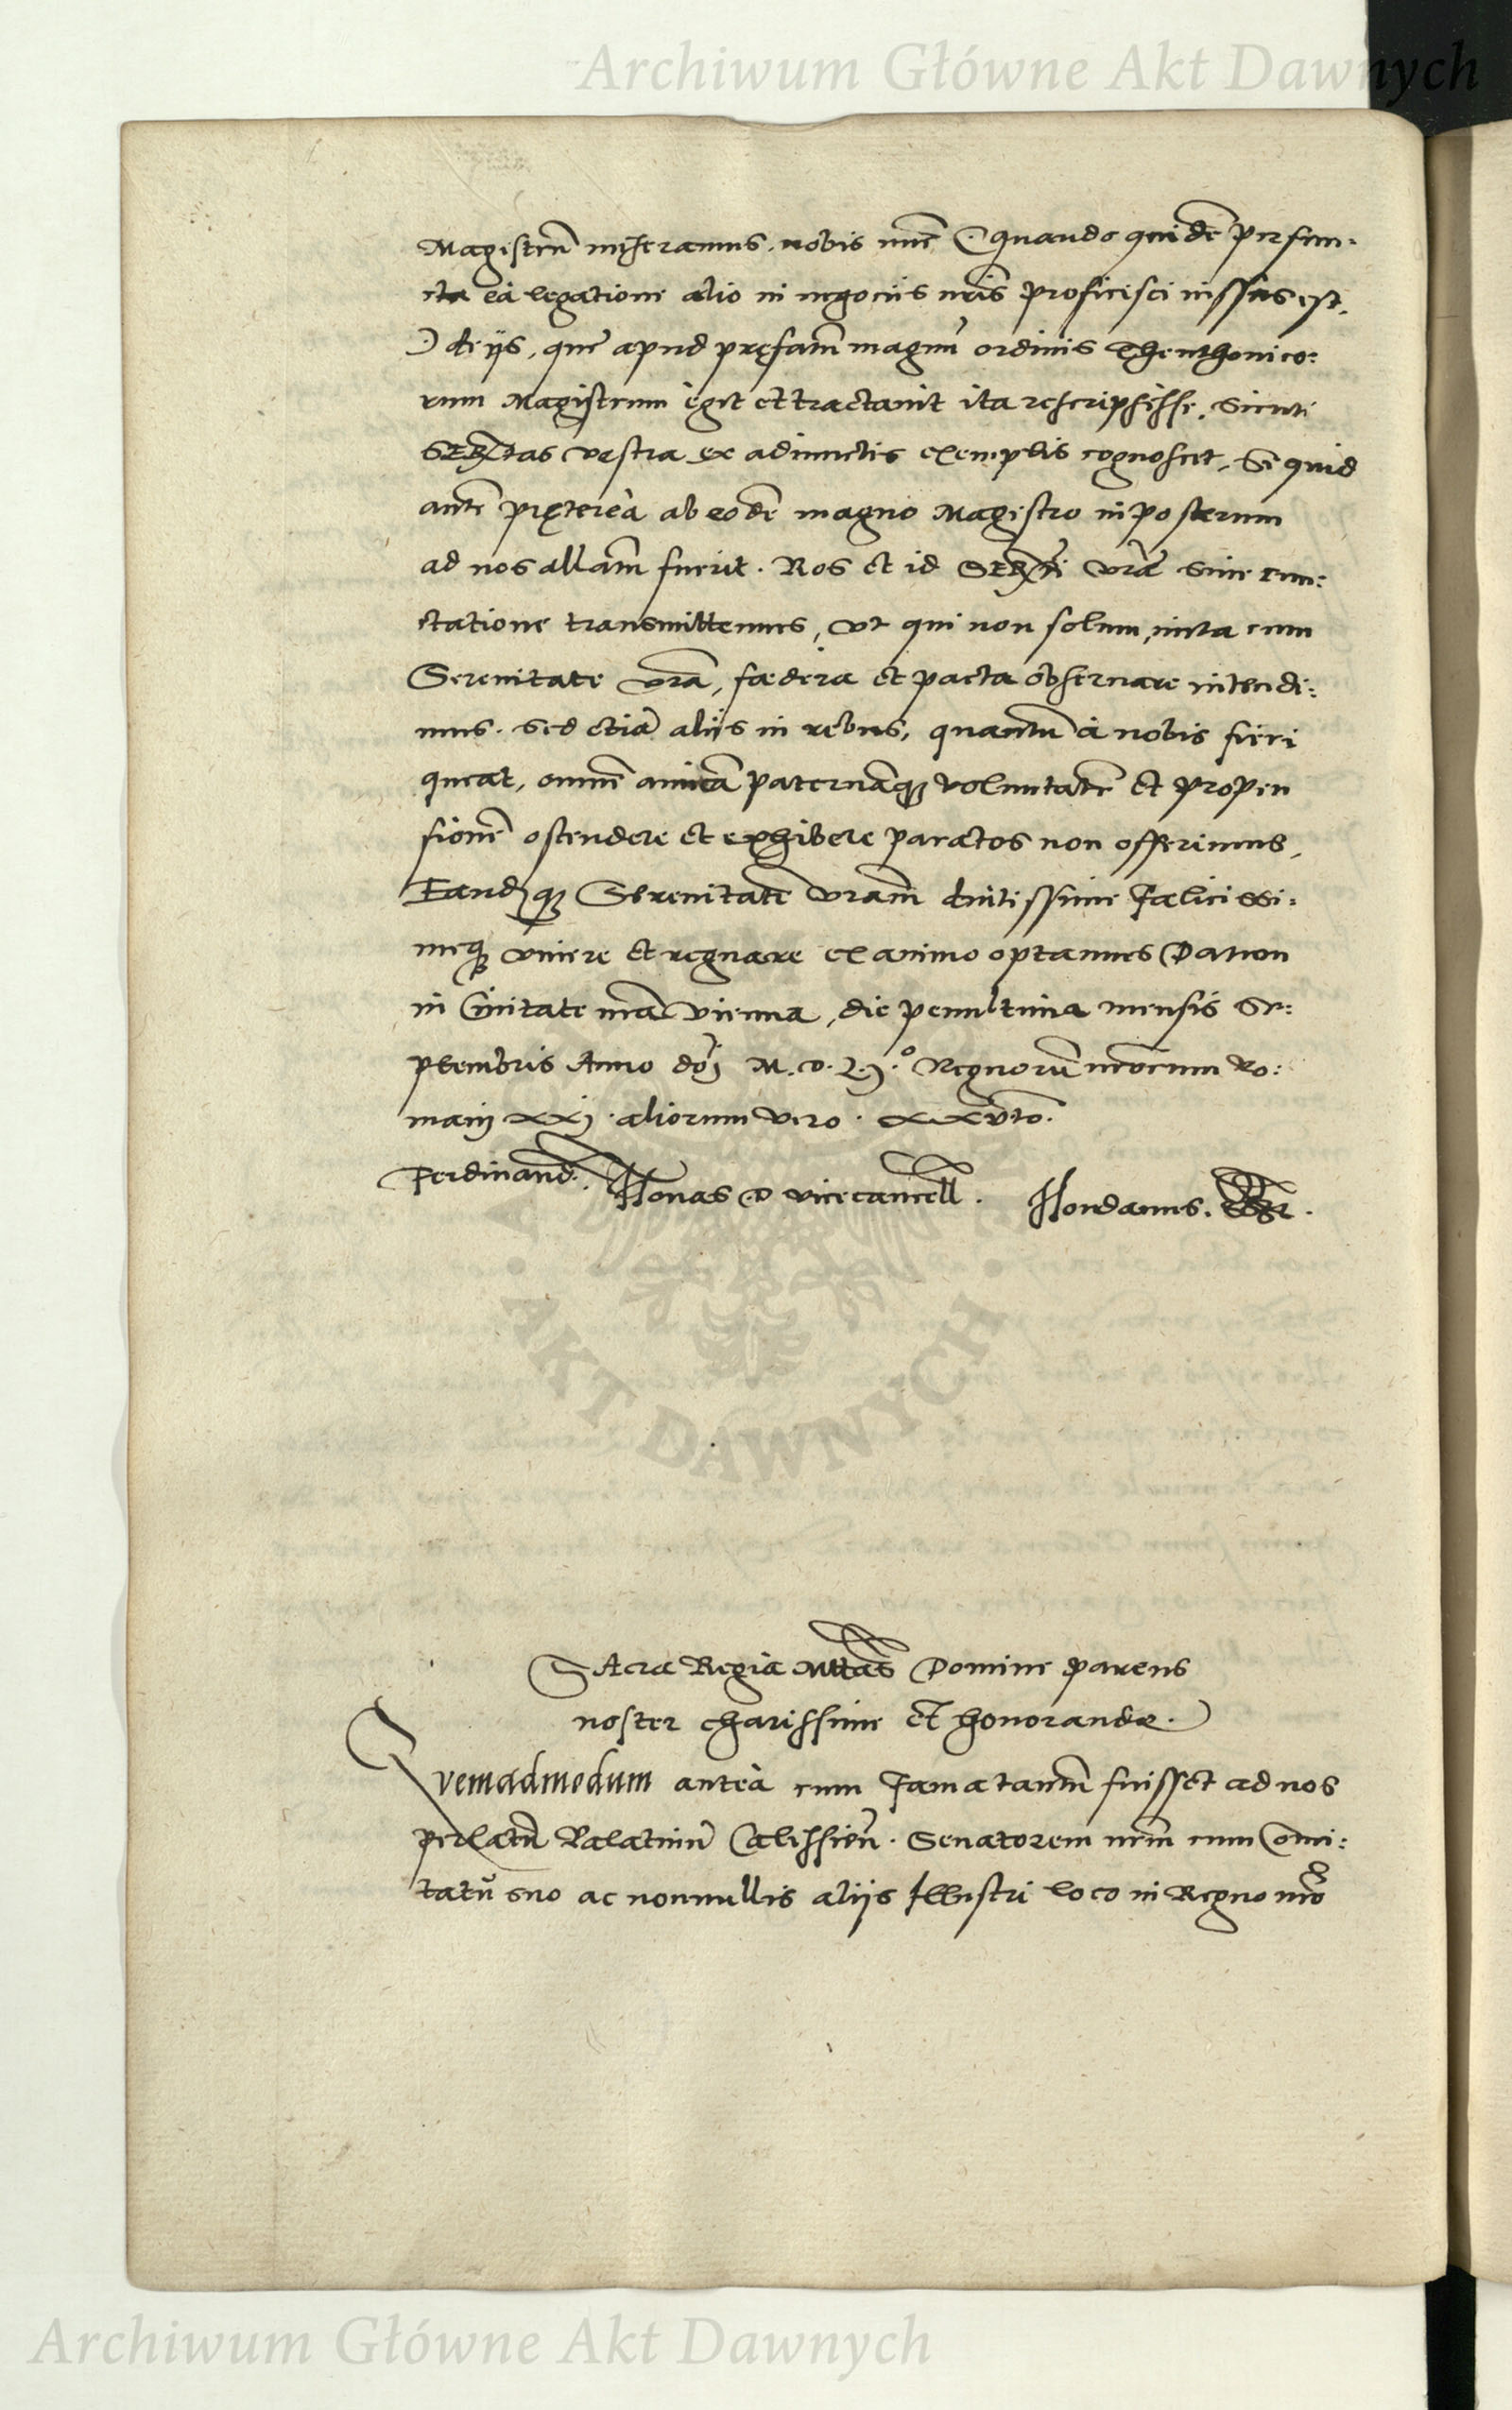 Archiwum Główne Akt Dawnych
Magistrũ miseramus, nobis nunc (quando quidẽ perfun:
cta ea legatione alio in negociis nr̃is proficisci iussus est.
) de ijs, quę apud pręfatũ magnũ ordinis Theuthonico:
rum Magistrum egit et tractauit ita rescripsisse, sicuti
SERtas vestra ex adiunctis exemplis cognoscet, Si quid
autẽ pręterea ab eodẽ magno Magistro in posterum
ad nos allatũ fuerit. Nos et id SERti vrẽ sine cun:
ctatione transmittemus, vt qui non solum, iuxta cum
Serenitate vrã, fædera et pacta obseruare intendi:
mus. sed etiã aliis in rebus, quantũ a nobis fieri
queat, omnẽ amicã paternãq; voluntatẽ et propen
sionẽ ostendere et exhibere paratos non offerimus,
Eandẽq; Serenitatẽ vram̃ diutissime Fælicissi:
meq; viuere et regnare ex animo optamus Datum
in Ciuitate nrã Vienna, die penultima mensis Se:
ptembris Anno dñj M.D.Lj.o Regnorũ nr̃orum Ro:
manj xxj. aliorum vero. xxvto.
Ferdinand. Jonas D vicecancell. Jordanus.
SAcra Regia Mttas Domine parens
noster charissime et honorande.
Quemadmodum antea cum Fama tantũ fuisset ad nos
perlatũ Palatinũ Calissieñ. Senatorem nr̃m cum Comi:
tatũ suo ac nonnullis aliis Illustri loco in Regno nr̃o
AKT DAWNYCH
Archiwum Główne Akt Dawnych